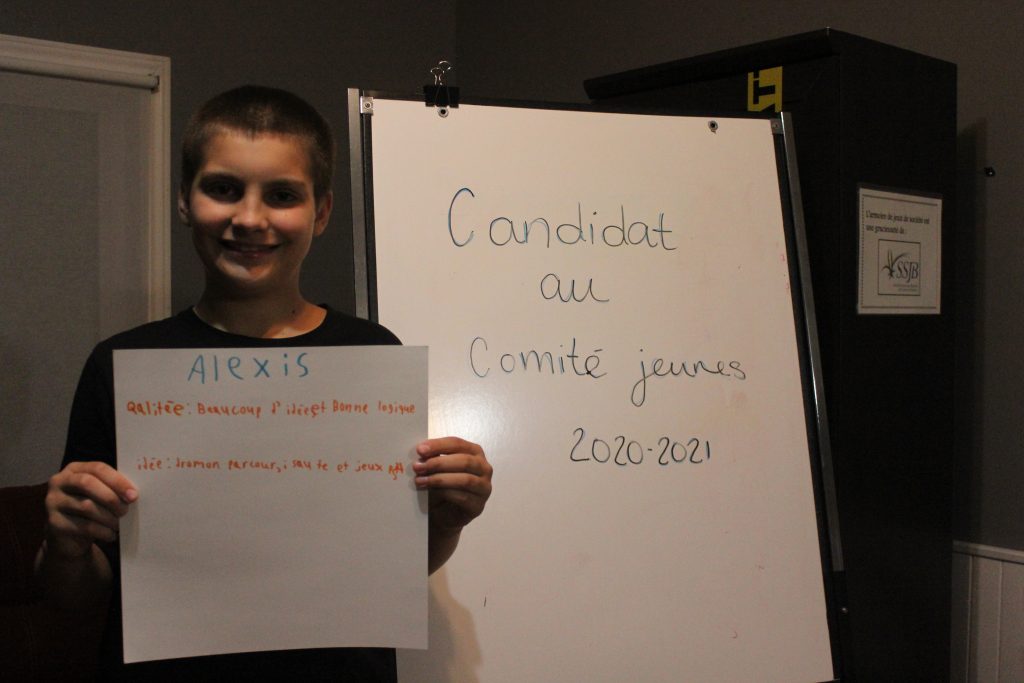 Alexis
Qalitée: Beaucoup d'idée et Bonne logique
idée: parcours, i saute et jeux
Candidat
au
Comité jeunes
2020-2021
L'armoire de jeux de société est
une gracieuseté de:
SSJB